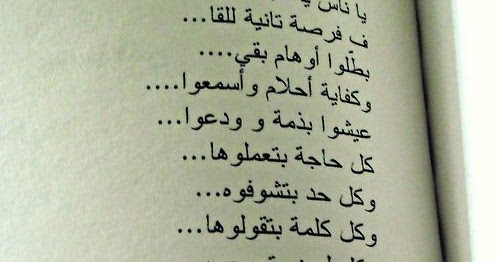 يا ناس
ف فرصة تانية للقا...
بطّلوا أوهام بقي....
وكفاية أحلام وأسمعوا....
عيشوا بذمة و ودعوا...
كل حاجة بتعملوها...
وكل حد بتشوفوه...
وكل كلمة بتقولوها...